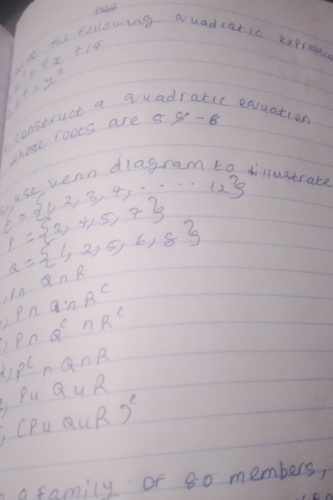 the following quadratic
9x + 14
= y²
construct a quadratic equation
whose roots are 5 & - 6
use venn diagram to illustrate
ε = {1, 2, 3, 4, ..... 12}
P = {2, 4, 5, 7}
Q = {1, 2, 5, 6, 8}
P∩ Q∩R
P∩ Q∩R^c
P∩ Q^c ∩R^c
d, P^c ∩ Q∩R
P∪ Q∪R
(P∪Q∪R)^c
a family of 80 members,